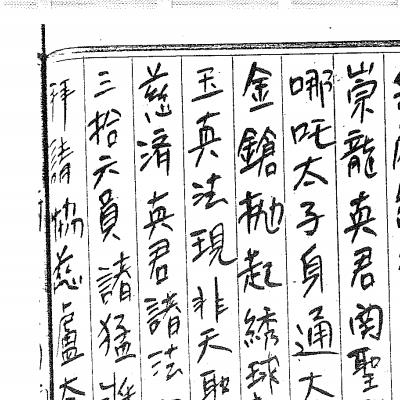 崇龍真君南聖
哪吒太子身通大
金鎗拋起綉球
玉真法現非天
慈濟真君諸法
三拾六員諸猛
拜請楊慈盧太